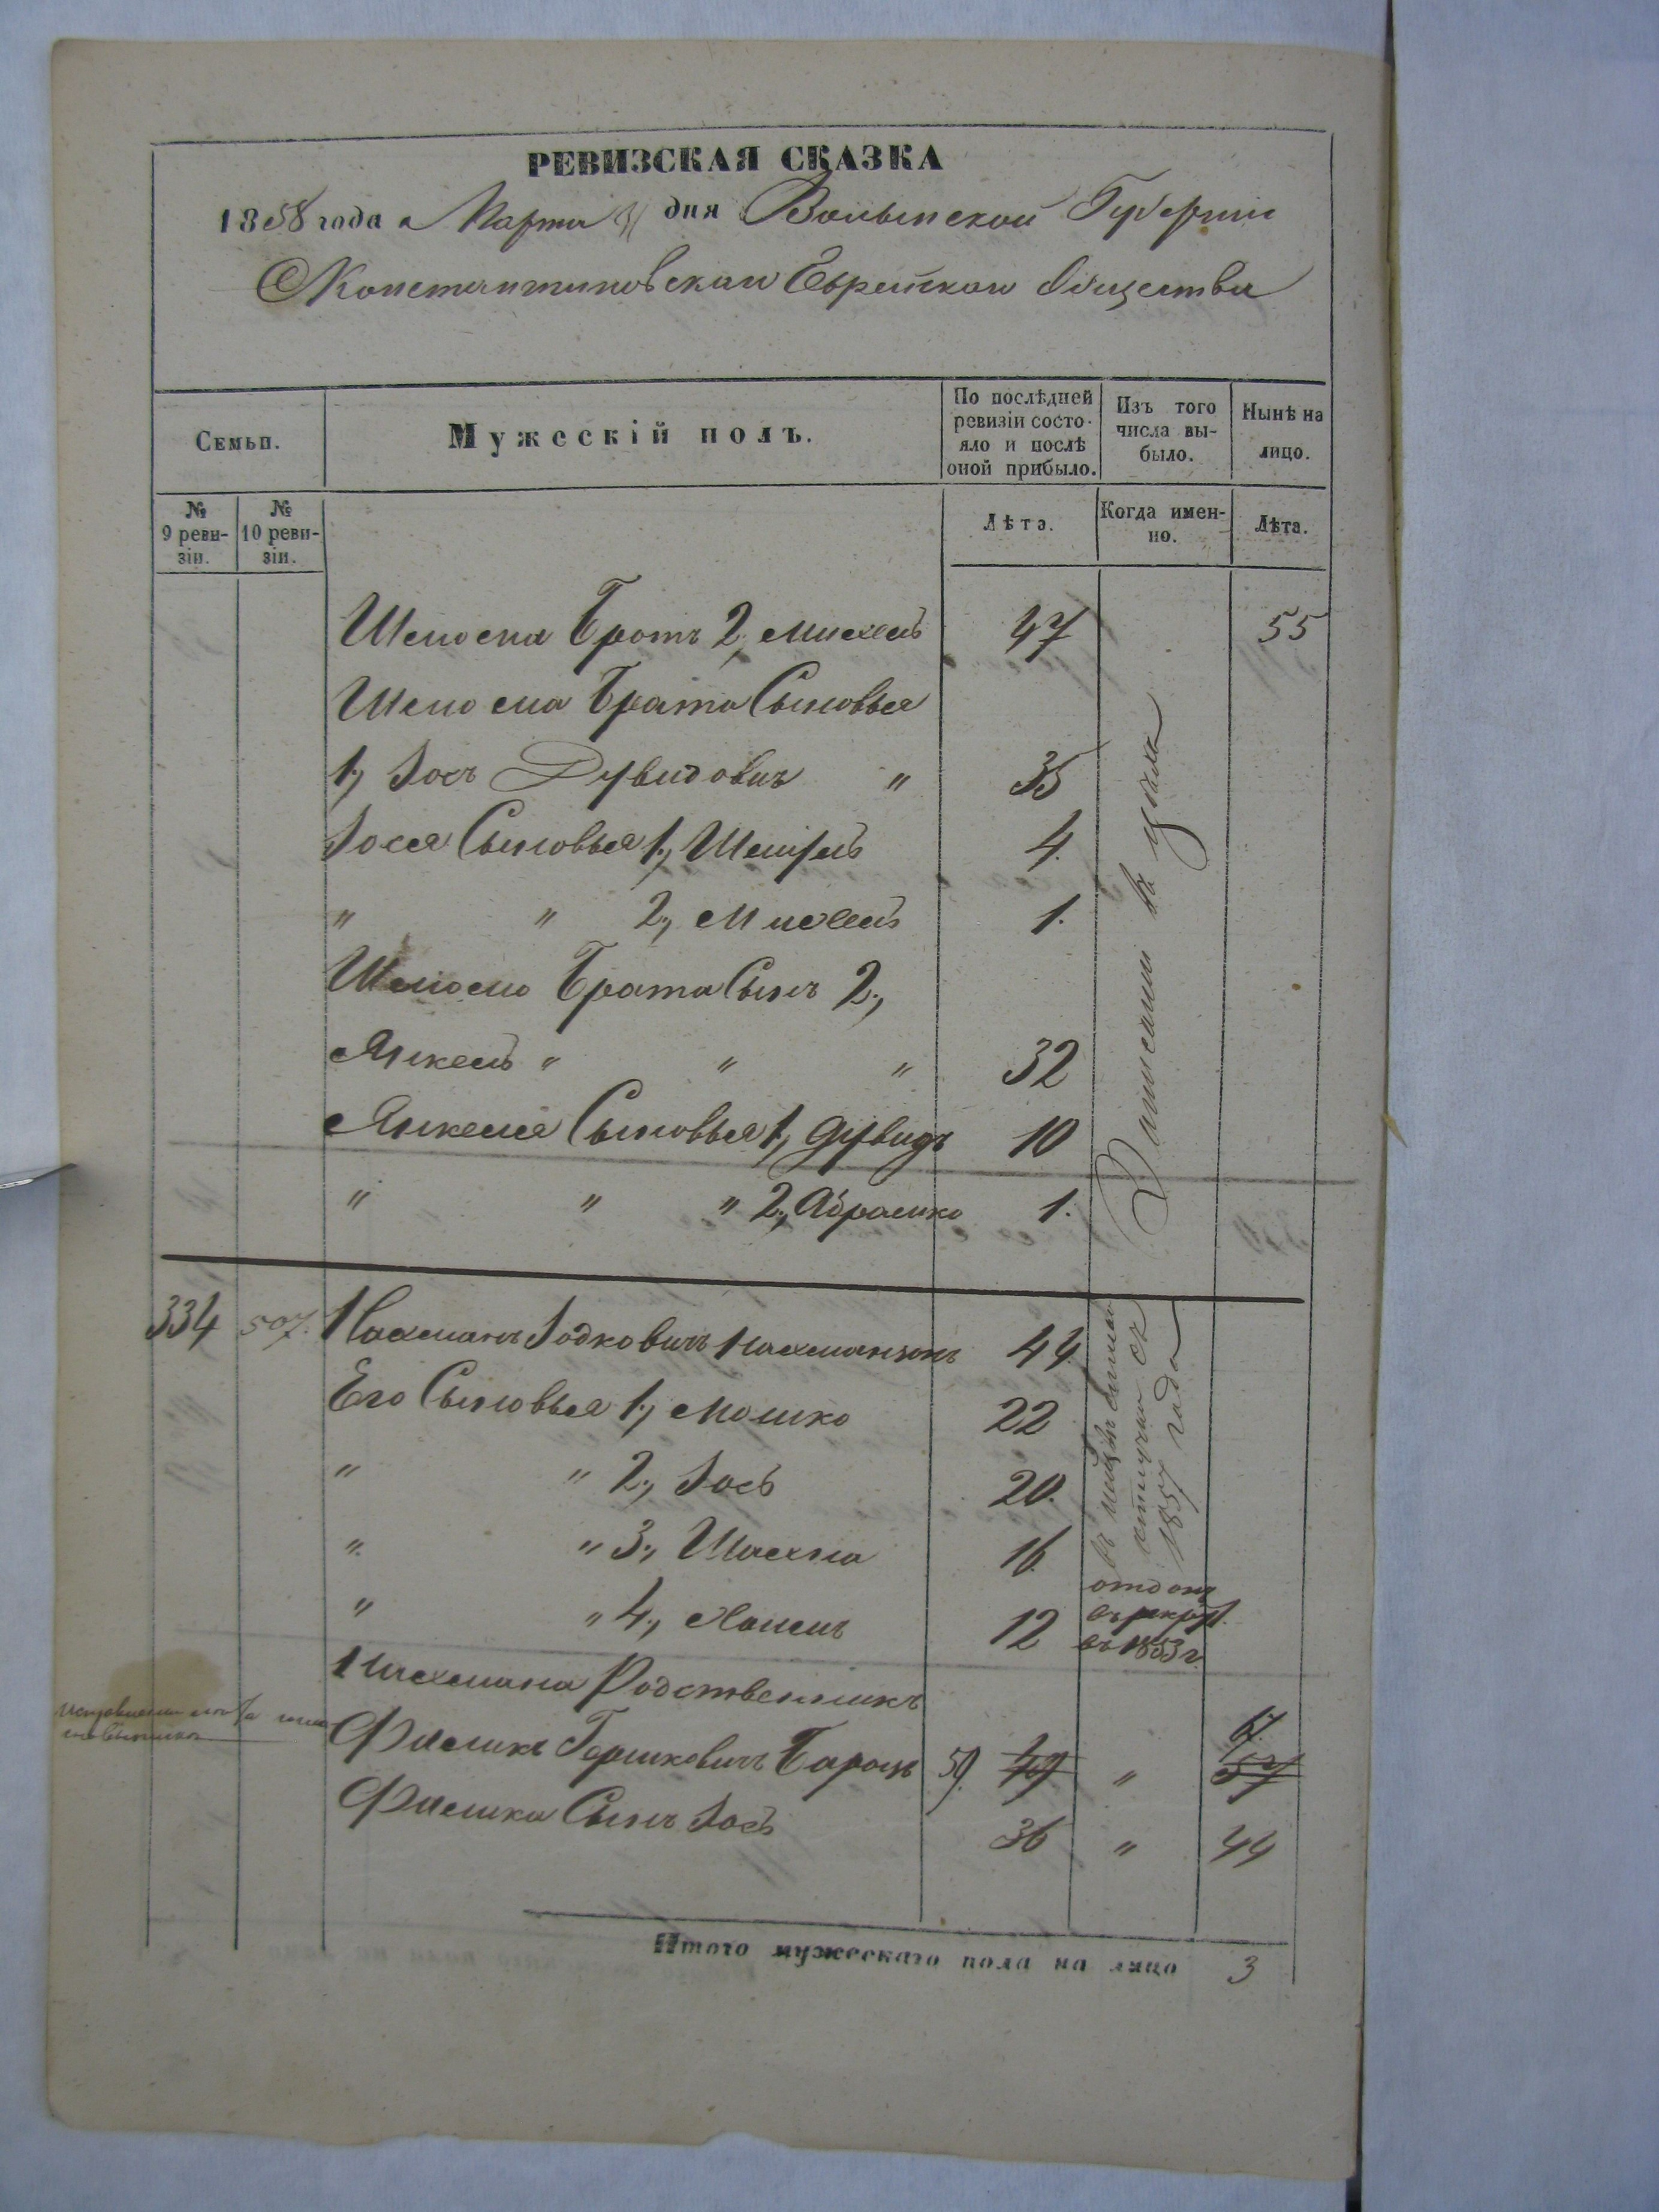 РЕВИЗСКАЯ СКАЗКА
1858 года Марта 31 дня Волынской Губернии
Константиновскаго Еврейскаго Общества
Семьи.
Мужескій полъ.
По послѣдней ревизіи состояло и послѣ оной прибыло.
Изъ того числа выбыло.
Нынѣ на лицо.
№ 9 ревизіи.
№ 10 ревизіи.
Лѣта.
Когда именно.
Лѣта.
Шмоема Братъ 2, Михель 47 55
Шмоема Брата Сыновья
1, Іось Дувидовичъ " 35
Іося Сыновья 1, 4.
" " 2, Михель 1.
Шмоема Брата Сынъ 2,
Янкель " " " 32
Янкеля Сыновья 1, Дувидъ 10
" " " 2, Абрамко 1.
334 507. Нахманъ Іодковичъ Нахманзонъ 44.
Его Сыновья 1, Мошко 22
" " 2, Іось 20.
" " 3, Шахна 16
" " 4, 12
отданъ
въ рекруты
въ 1853 г.
съ
1857 года
Нахмана Родственникъ
Фишикъ Гершковичъ 59. 49 " 67. 57
Фишика Сынъ Іось 36 " 44
Итого мужескаго пола на лицо 3